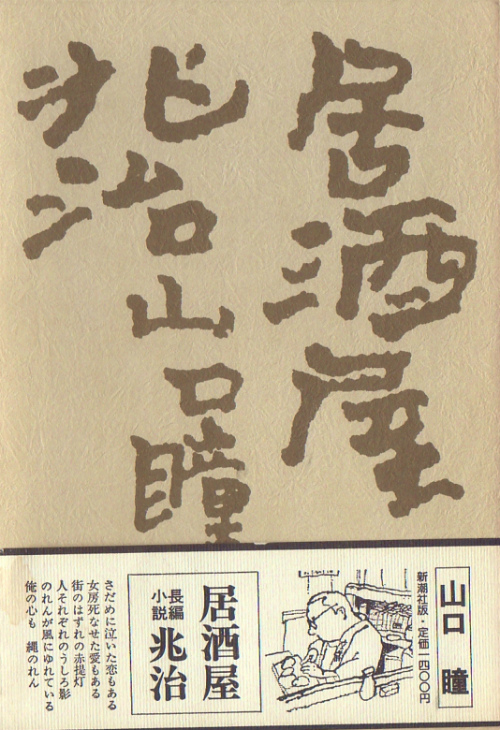 居酒屋
兆治山口瞳
山口 瞳
新潮社版・定価一四〇〇円
居酒屋
長編小説 兆治
さだめに泣いた恋もある
女房死なせた愛もある
街のはずれの赤提灯
人それぞれのうしろ影
のれんが風にゆれている
俺の心も 縄のれん